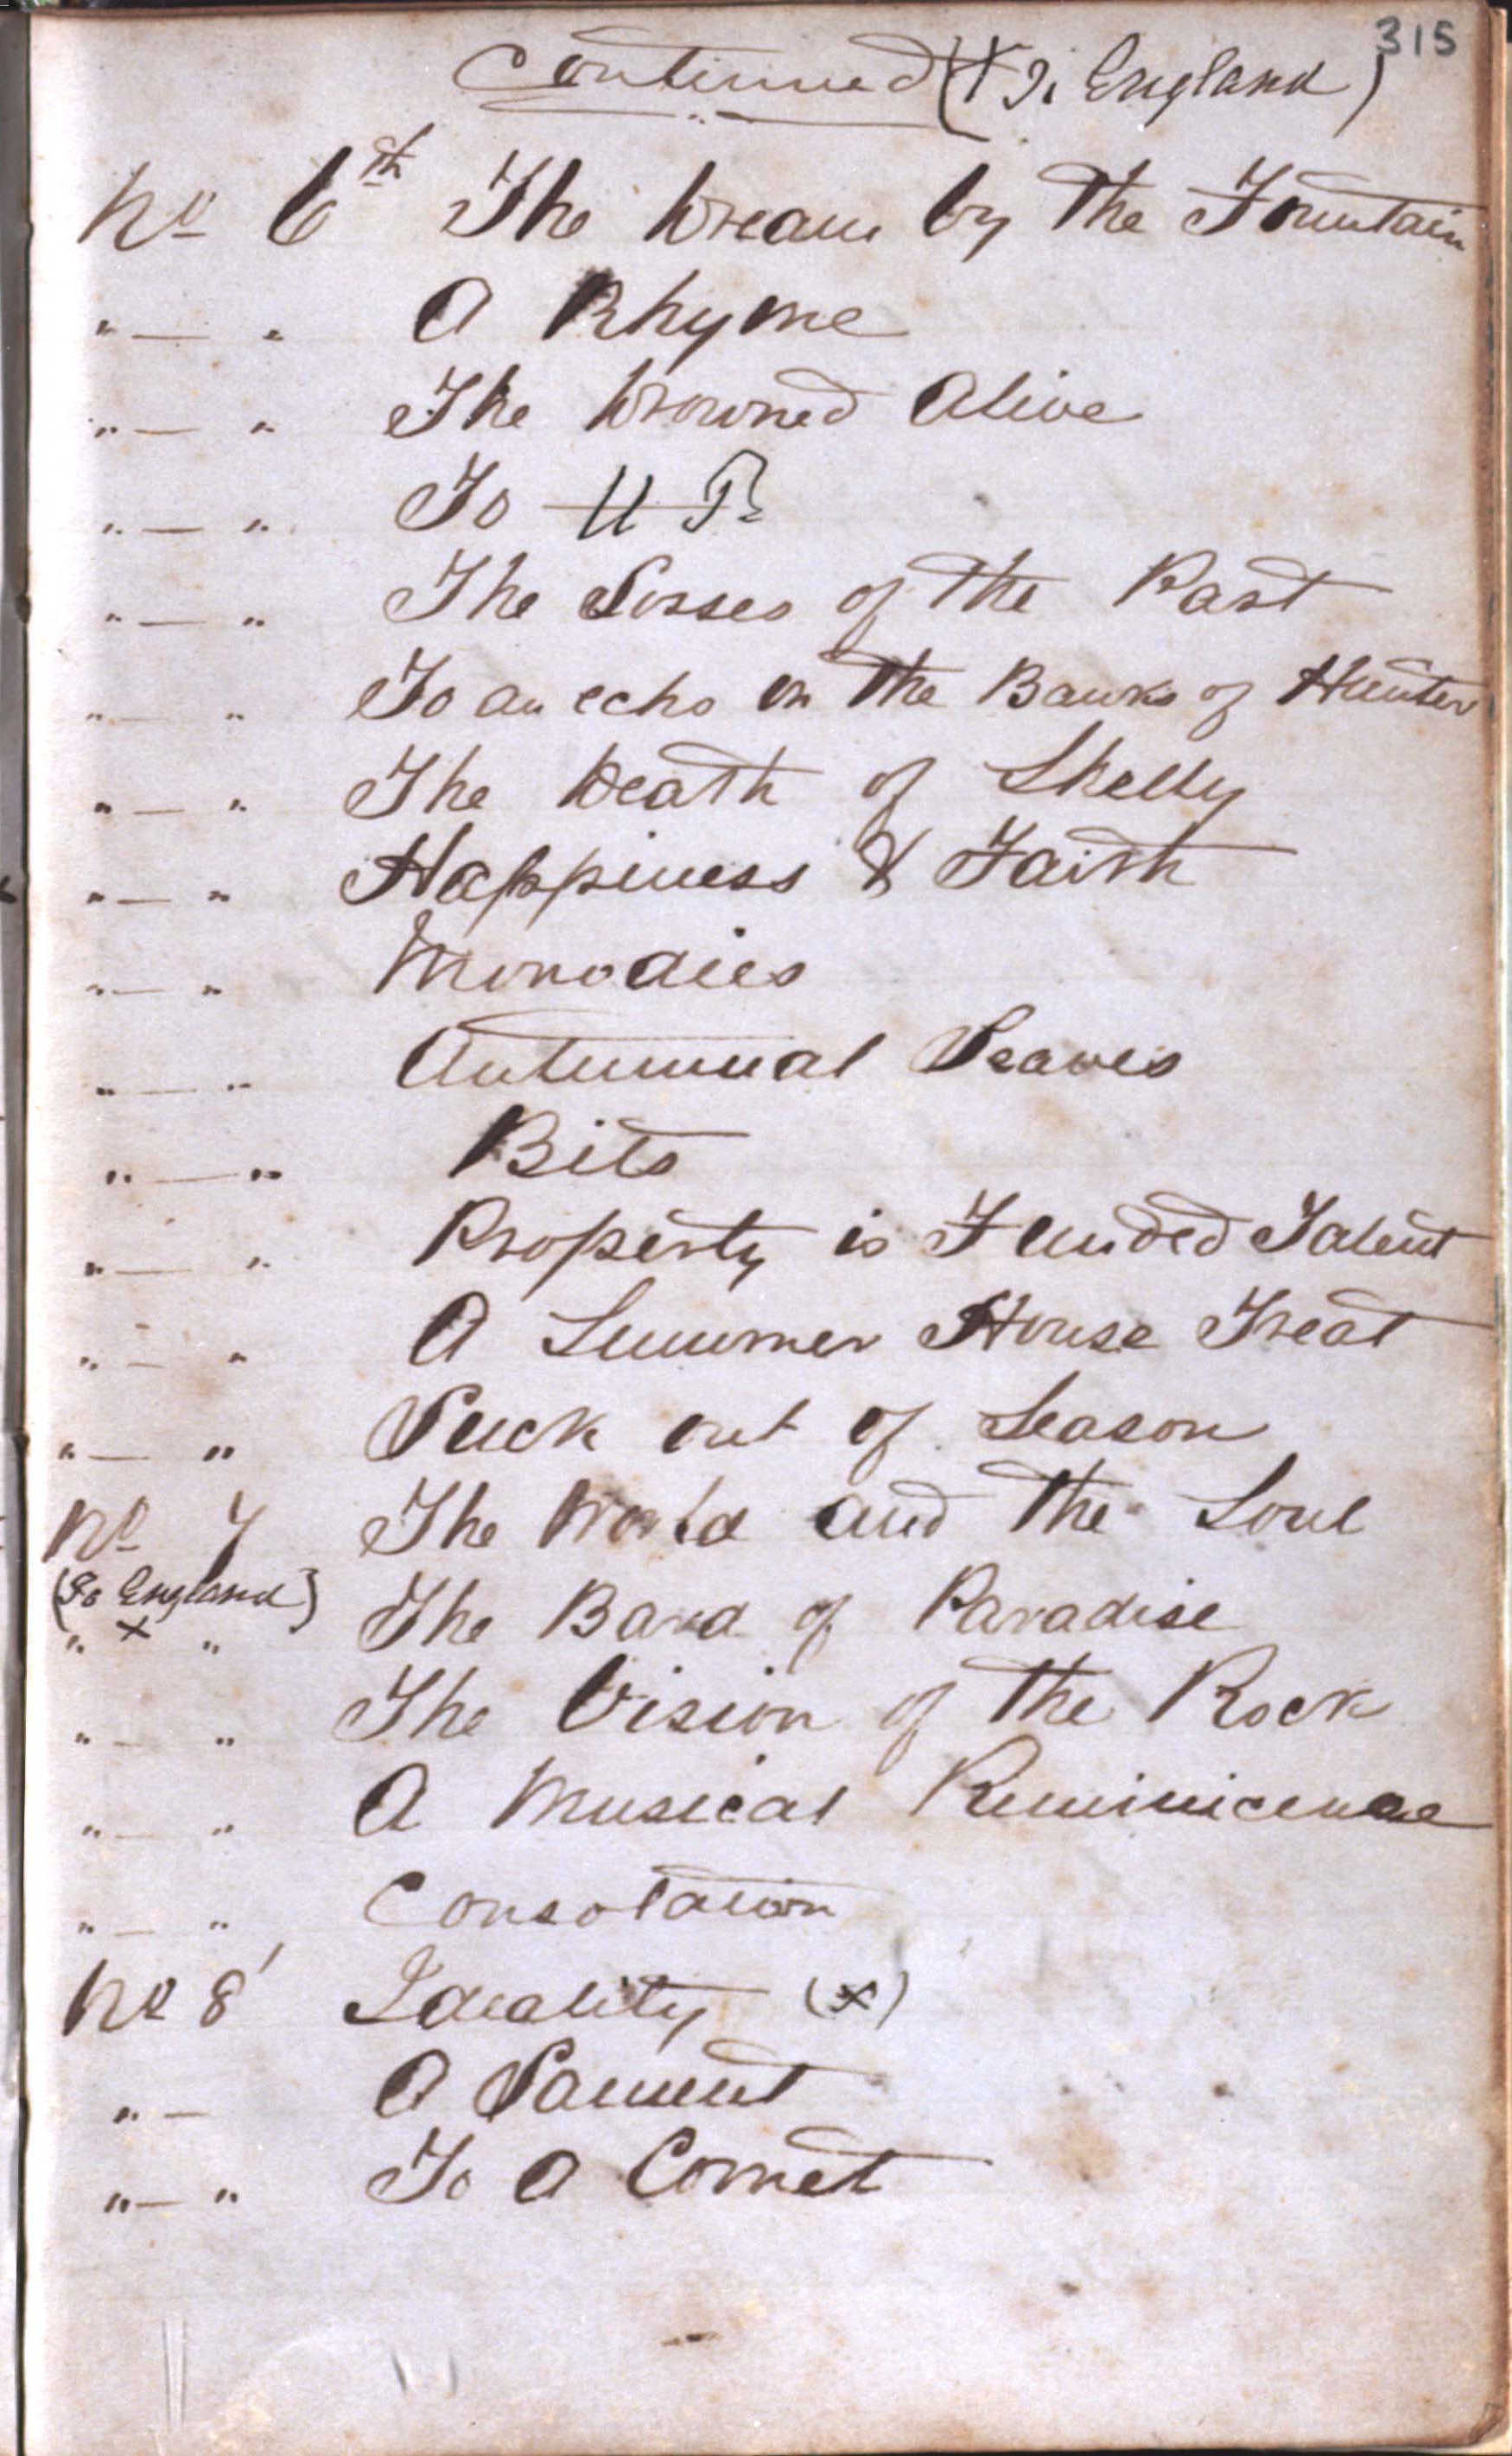 315
Continued (X To England)
No 6th The Dream by the Fountain
" — " A Rhyme
" — " The Drowned Alive
" — " To
" — " The Losses of the Past
" — " To an echo on the Banks of Hunter
" — " The Death of Shelly
" — " Happiness & Faith
" — " Monodies
" — " Autumnal Leaves
" — " Bits
" — " Property is Funded Talent
" — " A Summer House Treat
" — " Puck out of Season
No 7 The World and the Soul
(To England)
" X " The Bard of Paradise
" — " The Vision of the Rock
" — " A Musical Reminicence
" — " Consolation
No 8 Ideality (X)
" — A Lament
" — " To A Comet